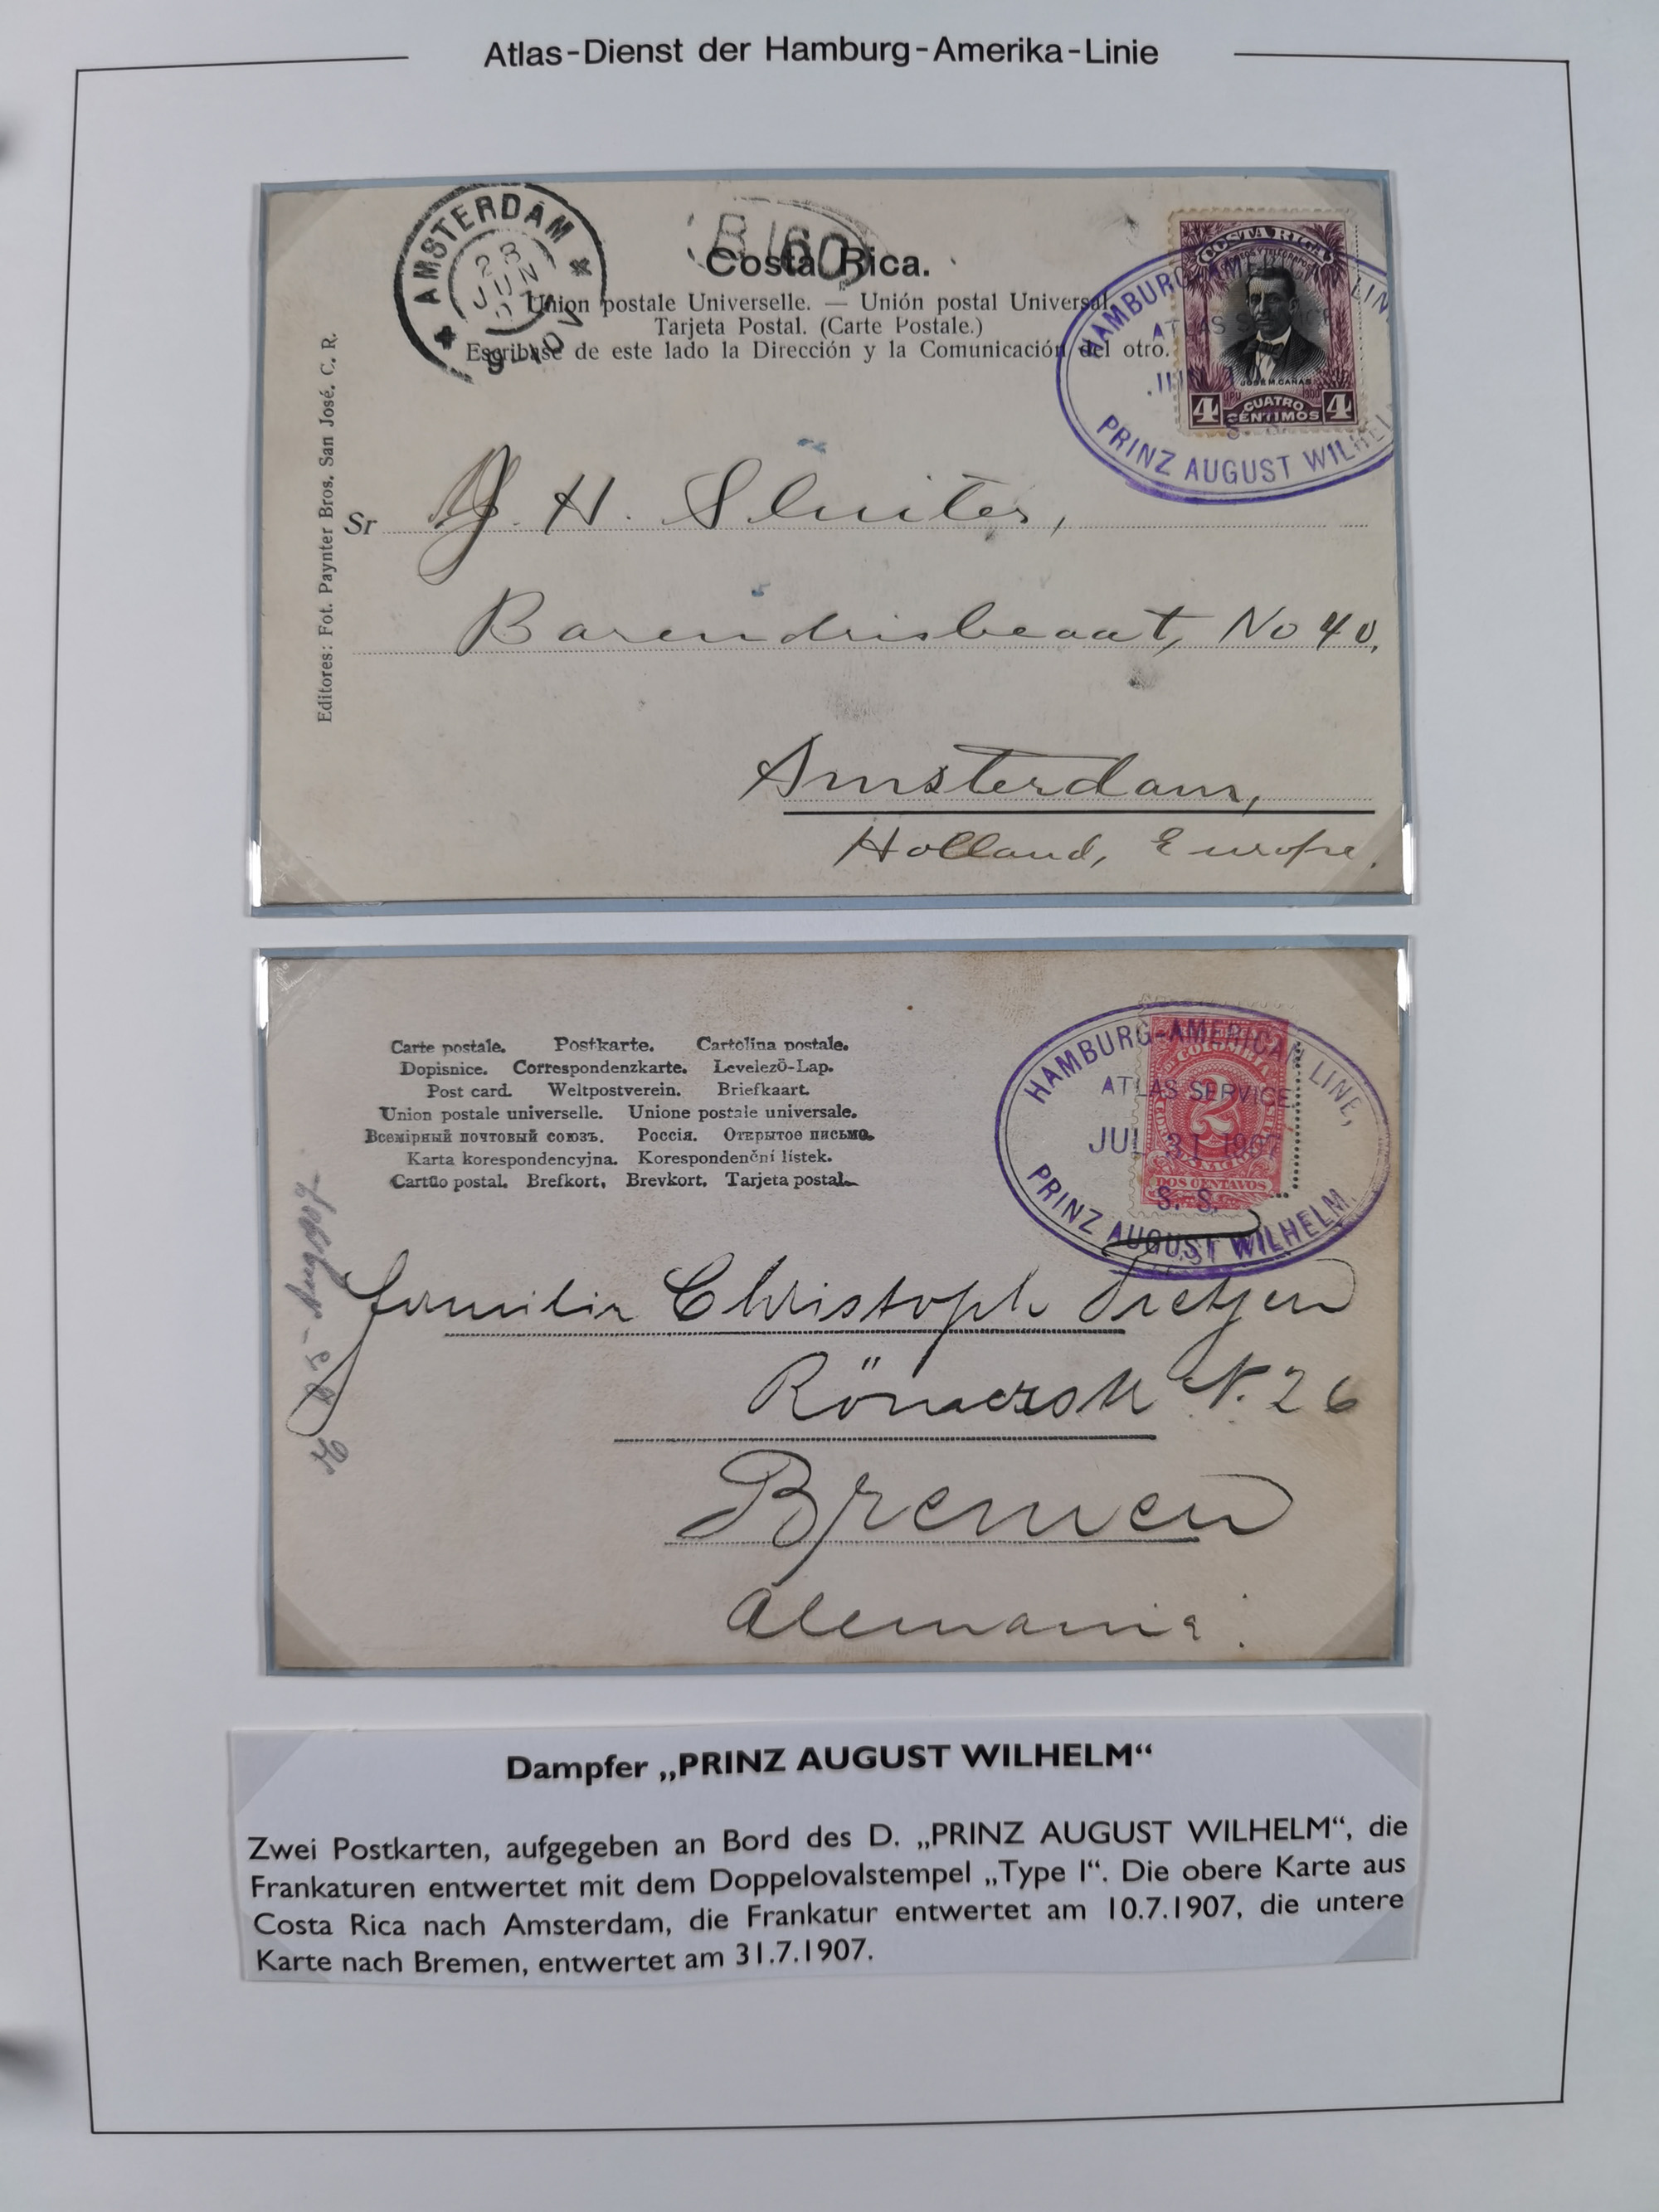 Atlas-Dienst der Hamburg-Amerika-Linie
AMSTERDAM
28
JUN
07
9-10V
B160
Costa Rica.
Union postale Universelle. — Unión postal Universal.
Tarjeta Postal. (Carte Postale.)
Escribase de este lado la Dirección y la Comunicación del otro.
Editores: Fot. Paynter Bros. San José. C. R.
COSTA RICA
JOSE M. CAÑAS
UPU 1900
4 CUATRO CENTIMOS 4
HAMBURG-AMERI LIN
ATLAS SERVICE
JU
S. S.
PRINZ AUGUST WILHEL
Sr J. H. Sluiter,
No 40,
Amsterdam,
Holland, Europe.
Carte postale. Postkarte. Cartolina postale.
Dopisnice. Correspondenzkarte. LevelezÖ-Lap.
Post card. Weltpostverein. Briefkaart.
Union postale universelle. Unione postale universale.
Всемірный почтовый союзъ. Россія. Открытое письмо.
Karta korespondencyjna. Korespondenční listek.
Cartão postal. Brefkort. Brevkort. Tarjeta postal.
HAMBURG-AMERICAN LINE,
ATLAS SERVICE
JUL 31 1907
S. S.
PRINZ AUGUST WILHELM
COLOMBIA
2
DOS CENTAVOS
Familia Christoph
N. 26
Bremen
Alemania.
Dampfer „PRINZ AUGUST WILHELM“
Zwei Postkarten, aufgegeben an Bord des D. „PRINZ AUGUST WILHELM“, die
Frankaturen entwertet mit dem Doppelovalstempel „Type I“. Die obere Karte aus
Costa Rica nach Amsterdam, die Frankatur entwertet am 10.7.1907, die untere
Karte nach Bremen, entwertet am 31.7.1907.